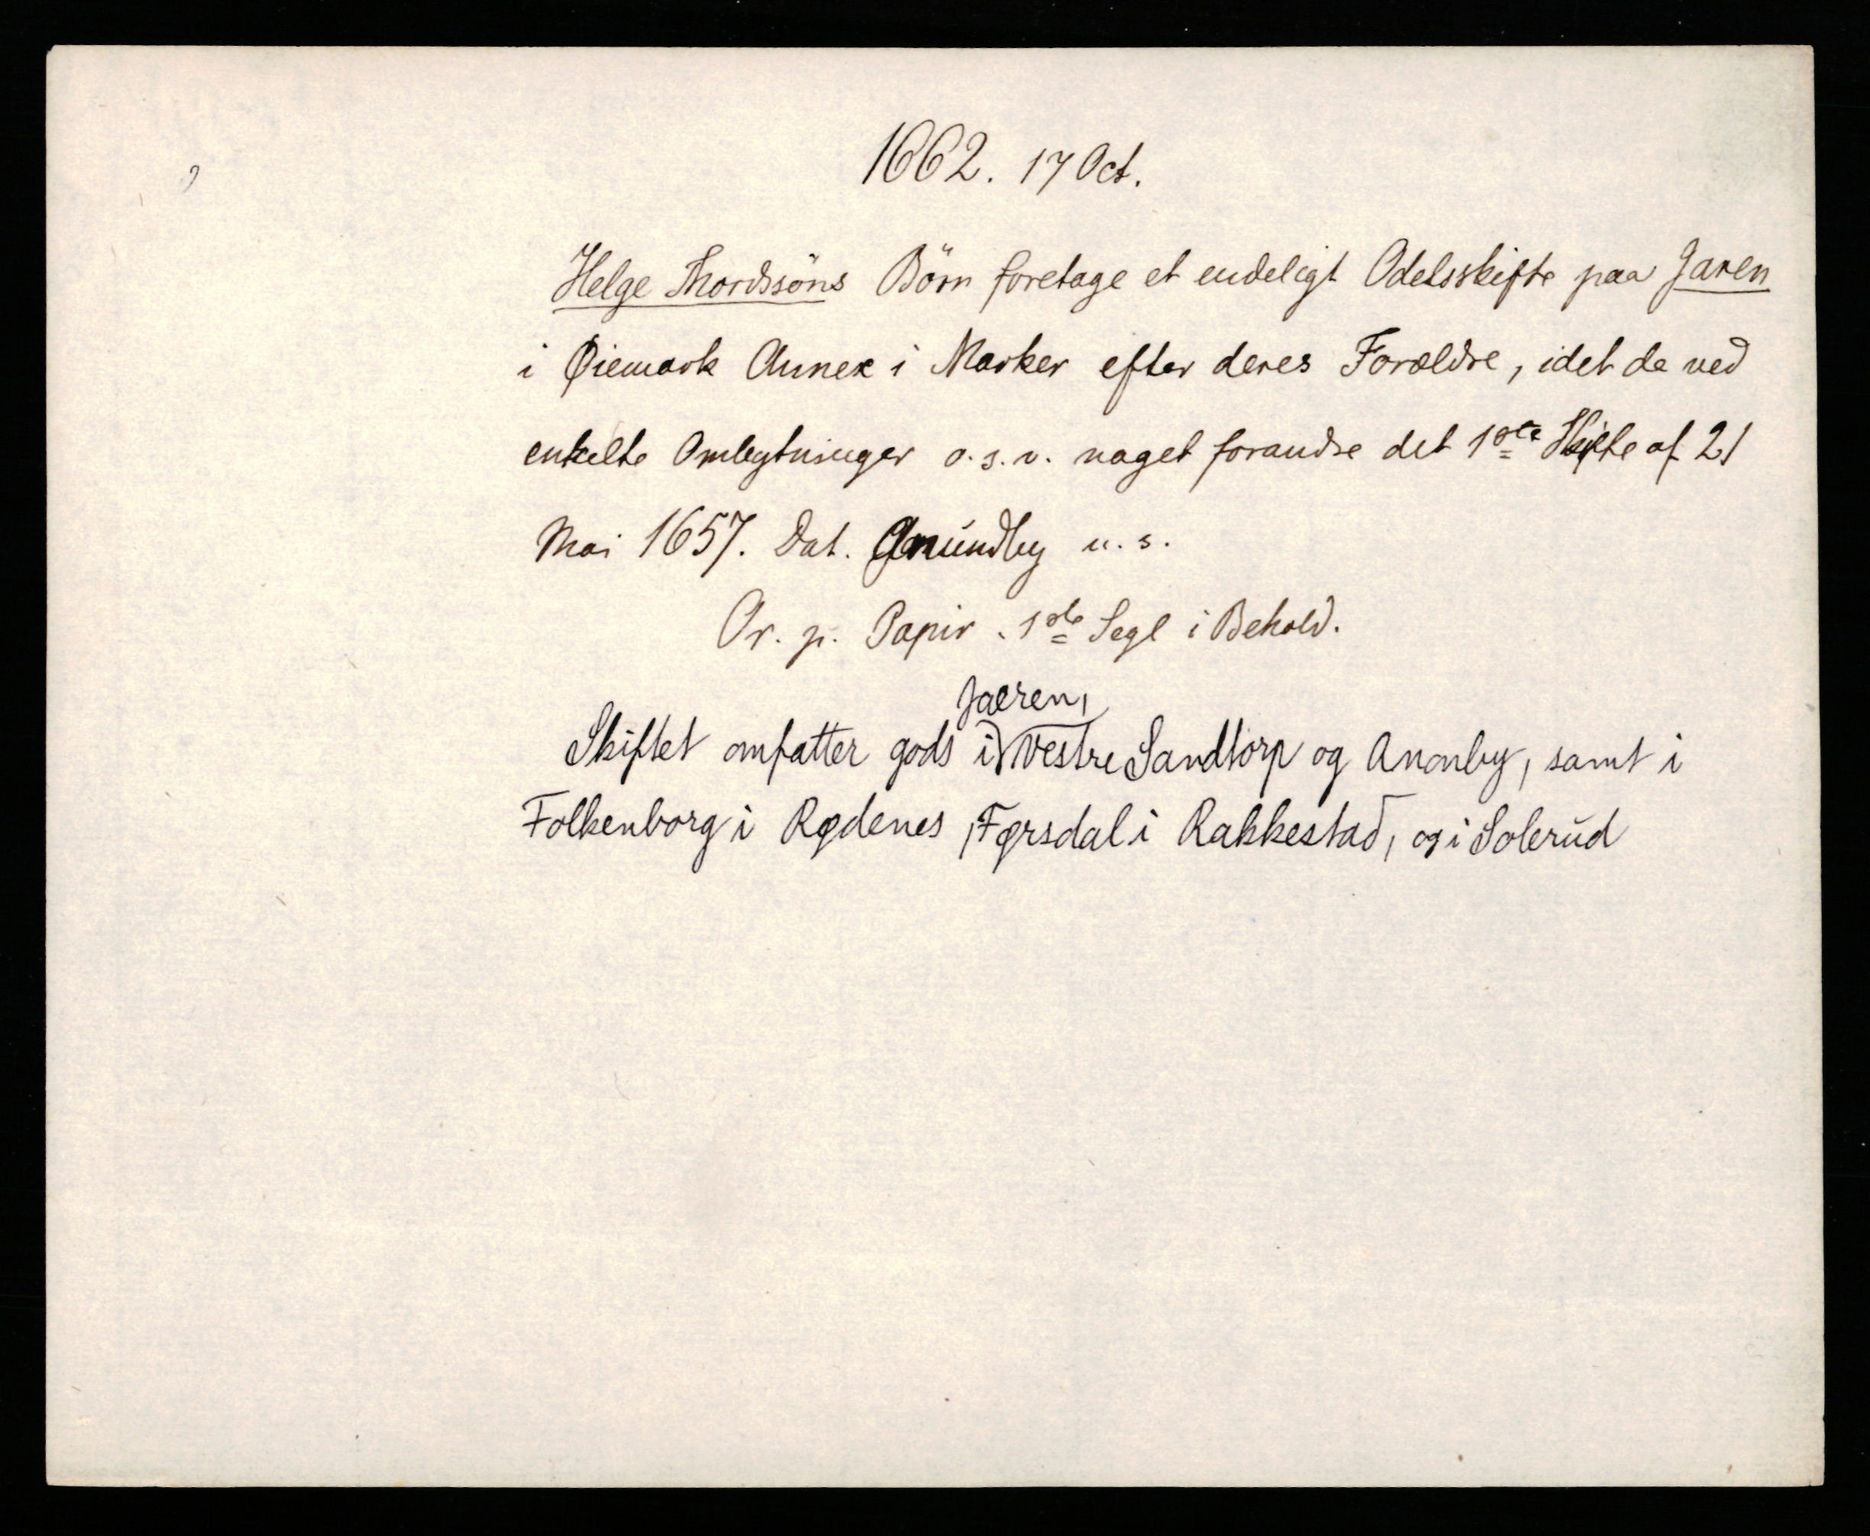 1662. 17 Oct.
Helge Thordssöns Börn foretage et endeligt Odelsskifte paa Jaren
i Øiemark Annex i Marker efter deres Forældre, idet de ved
enkelte Ombytninger o.s.v. noget forandre det 1ste Skifte af 21
Mai 1657. Dat. Anundby u. s.
Or. p. Papir. 1ste Segl i Behold.
Jaeren,
Skiftet omfatter gods i Vestre Sandtorp og Anonby, samt i
Folkenborg i Rødenes, Førsdal i Rakkestad, og i Solerud